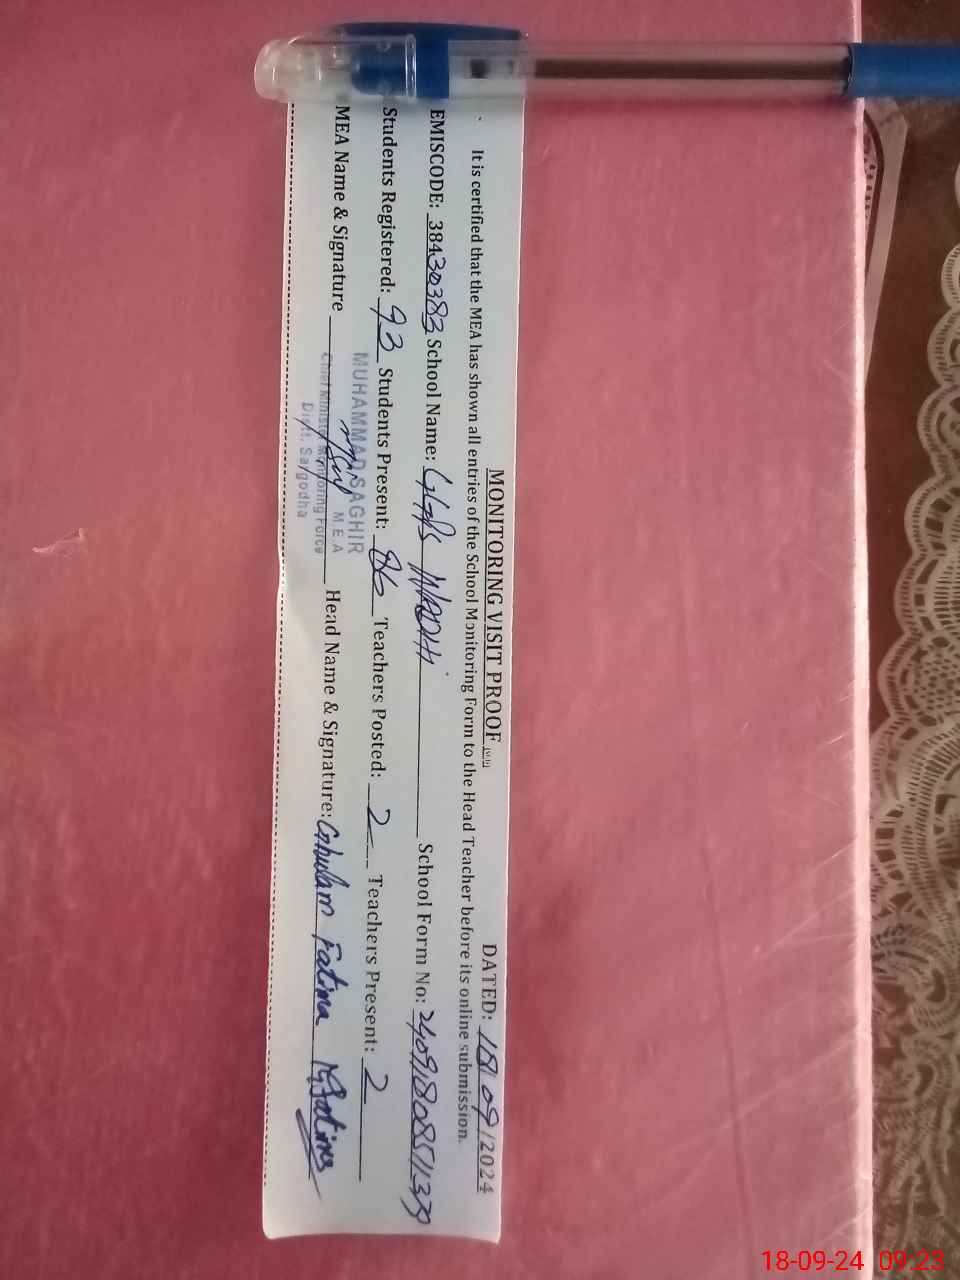 MONITORING VISIT PROOF DATED: 18/09/2024
It is certified that the MEA has shown all entries of the School Monitoring Form to the Head Teacher before its online submission.
EMISCODE: 38430383 School Name: GGPS NADHI School Form No:
Students Registered: 93 Students Present: 86 Teachers Posted: 2 Teachers Present: 2
MEA Name & Signature Head Name & Signature: Ghulam Fatima
MUHAMMAD SAGHIR
M.E.A
Chief Minister Monitoring Force
Distt. Sargodha
18-09-24 09:23